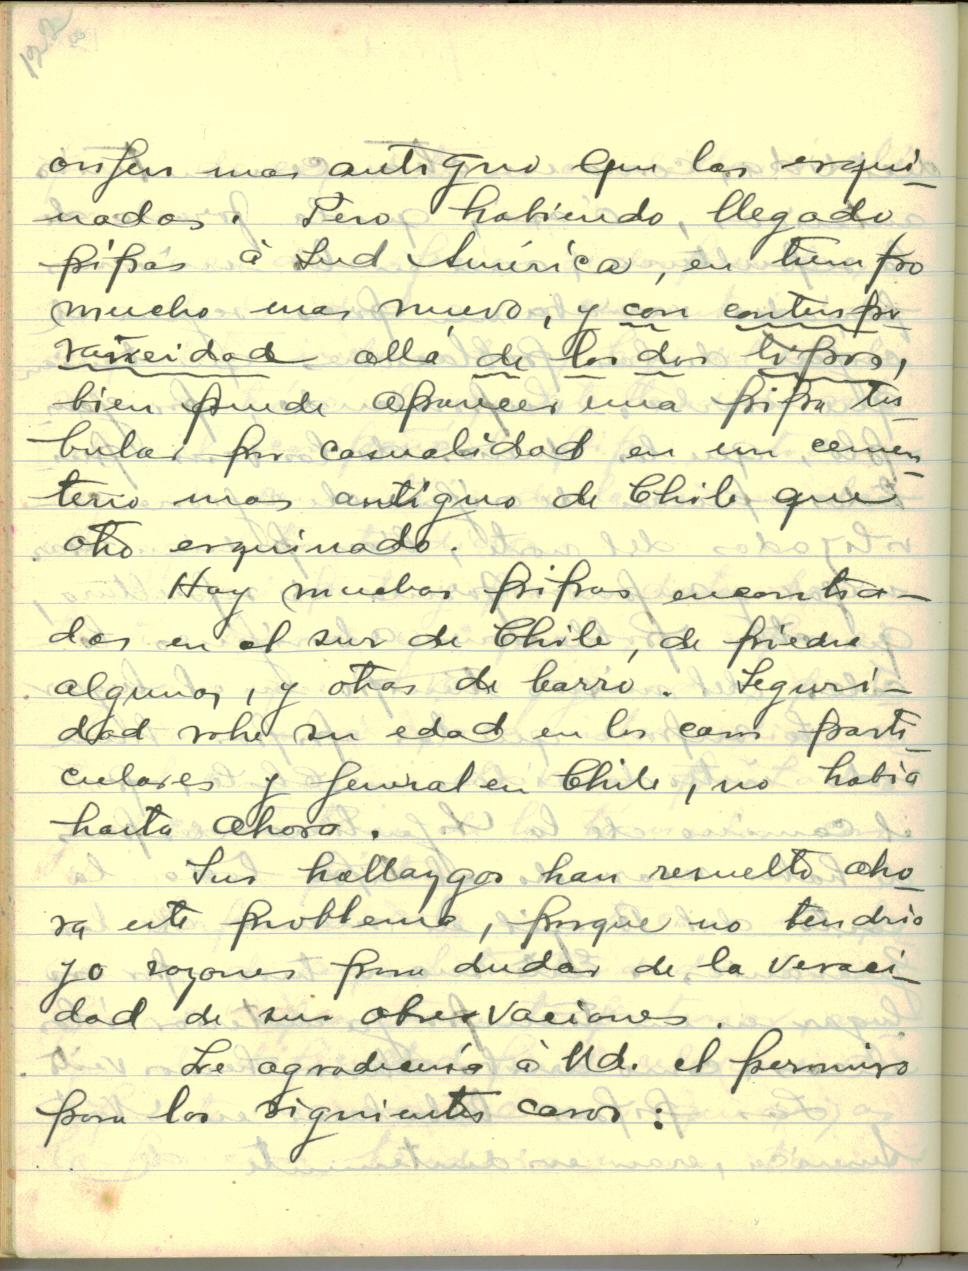 122
orijen mas antiguo que las esqui-
nadas. Pero habiendo, llegado
pipas à Sud América, en tiempo
mucho mas nuevo, y con contempo-
raneidad allá de los dos tipos,
bien puede aparecer una pipa tu-
bular por casualidad en un cemen-
terio mas antiguo de Chile que
otro esquinado.
Hay muchas pipas encontra-
das en el sur de Chile, de piedra
algunas, y otras de barro. Seguri-
dad sobre su edad en los casos parti-
culares y general en Chile, no habia
hasta ahora.
Sus hallazgos han resuelto aho-
ra este problema, porque no tendria
yo razones para dudar de la veraci-
dad de sus observaciones.
Le agradeceria à Ud. el permiso
para los siguientes casos: